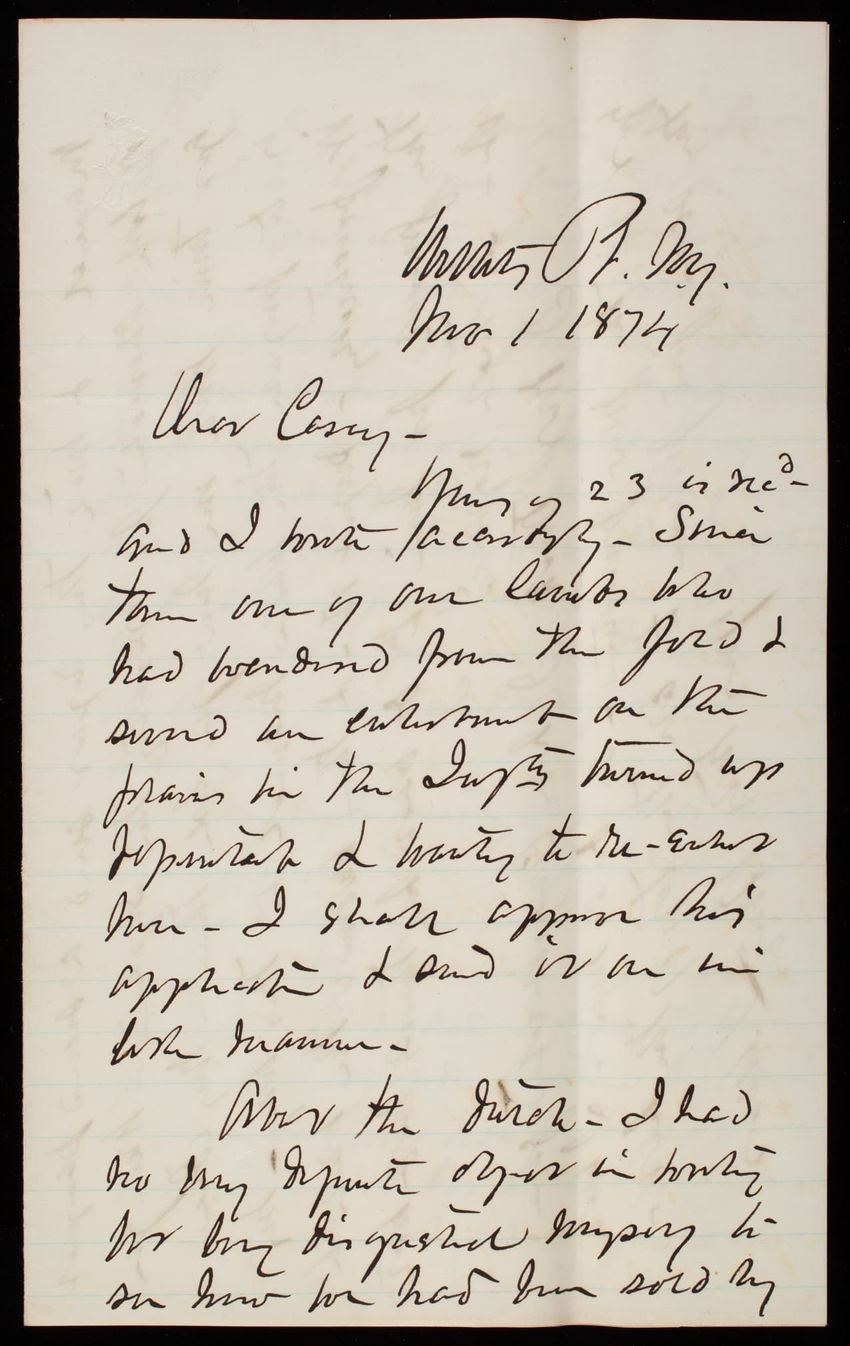 Willets Pt. N.Y.
Nov 1 1874
Dear Casey -
Yours of 23 is recd -
and I wrote accordingly - Since
then one of our lambs who
had wandered from the fold &
served an enlistment on the
plains in the Infty turned up
repentant & wanting to re-enlist
here - I shall approve his
application & send it on in
like manner -
About the Dutch - I had
no very definite object in writing
but being disgusted myself to
see how we had been sold by